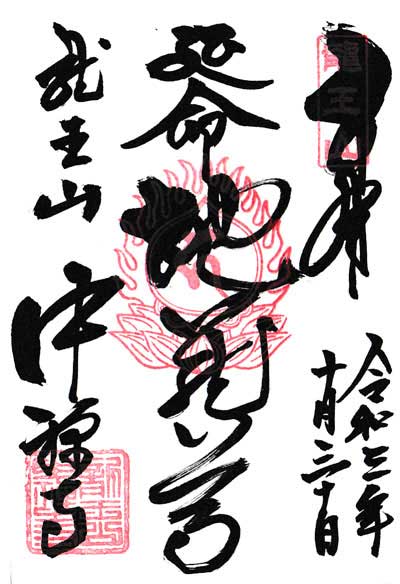 奉拝
令和三年
十月三十日
延命地蔵尊
龍王山
中禅寺